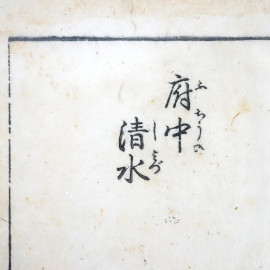 府中
ふちうの
清水
しみづ